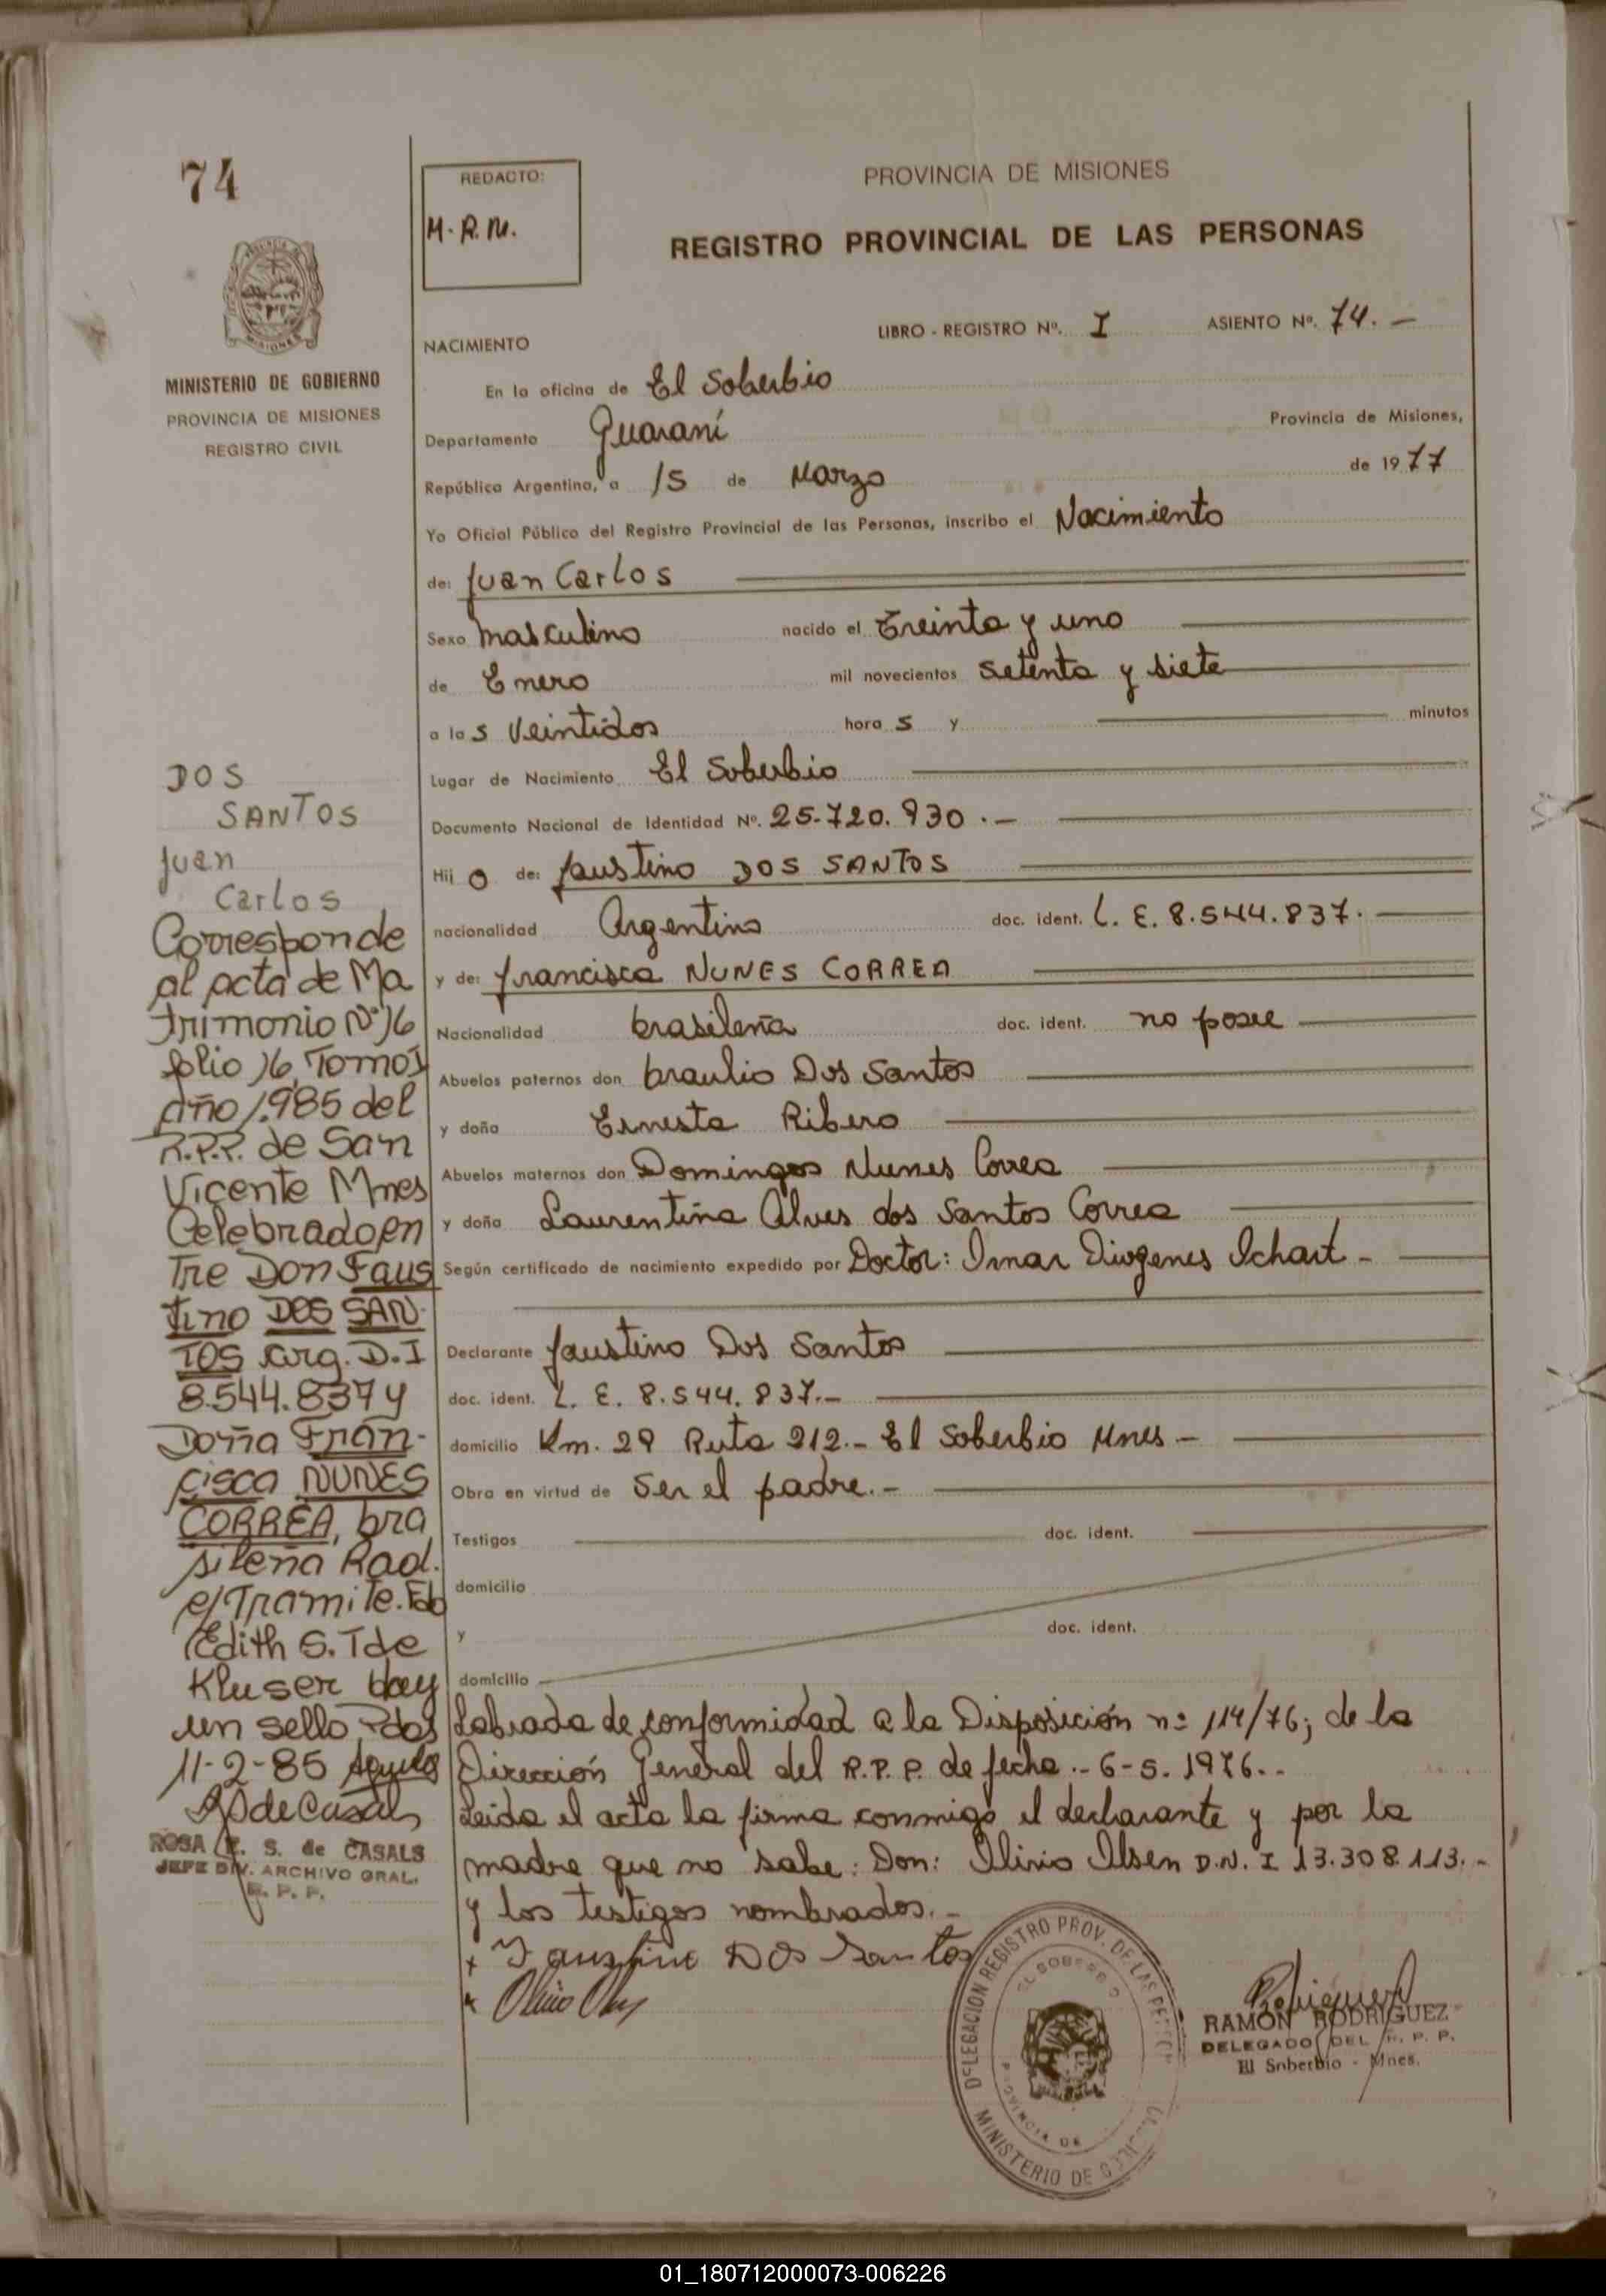 74
REDACTO:
M. R. M.
PROVINCIA DE MISIONES
REGISTRO PROVINCIAL DE LAS PERSONAS
MINISTERIO DE GOBIERNO
PROVINCIA DE MISIONES
REGISTRO CIVIL
LIBRO - REGISTRO Nº. I ASIENTO Nº. 74. —
NACIMIENTO
En la oficina de El Soberbio
Departamento Guaraní Provincia de Misiones,
República Argentina, a 15 de Marzo de 1977
Yo Oficial Público del Registro Provincial de las Personas, inscribo el Nacimiento
de: Juan Carlos
Sexo masculino nacido el Treinta y uno
de Enero mil novecientos setenta y siete
a las veintidos horas y minutos
Lugar de Nacimiento El Soberbio
Documento Nacional de Identidad Nº. 25.720.930.—
Hijo de: Faustino DOS SANTOS
nacionalidad Argentino doc. ident. L. E. 8.544.837.
y de: Francisca NUNES CORREA
Nacionalidad brasileña doc. ident. no posee
Abuelos paternos don braulio Dos Santos
y doña Ernesta Ribero
Abuelos maternos don Domingos Nunes Correa
y doña Laurentina Alves dos Santos Correa
Según certificado de nacimiento expedido por Doctor: Omar Diogenes Ichart -
Declarante Faustino Dos Santos
doc. ident. L. E. 8.544.837.—
domicilio Km. 29 Ruta 212.- El Soberbio Mnes -
Obra en virtud de Ser el padre.-
Testigos doc. ident.
domicilio
y doc. ident.
domicilio
Labrada de conformidad a la Disposición nº 114/76; de la
Dirección General del R.P.P. de fecha.- 6-5.1976.-
Leida el acta la firma conmigo el declarante y por la
madre que no sabe: Don: Olinio Olsen D.N.I 13.308.113.-
y los testigos nombrados.-
x Faustino Dos Santos
x
DOS
SANTOS
Juan
Carlos
Corresponde
al acta de Ma
trimonio Nº 16
folio 16, Tomo I
año 1.985 del
R.P.P. de San
Vicente Mnes
Celebrado en
Tre Don Faus
tino DOS SAN-
TOS arg. D.I
8.544.837 y
Doña Fran-
cisca NUNES
CORREA, bra
sileña Rad.
e/Tramite. Fdo
Edith S. T de
Kluser hay
un sello Pdas
11-2-85
de Casals
ROSA E. S. de CASALS
JEFE DIV. ARCHIVO GRAL.
R. P. P.
DELEGACION REGISTRO PROV. DE LAS PERSO
EL SOBERBIO
PROVINCIA DE
MINISTERIO DE GOBIERNO
RAMON RODRIGUEZ
DELEGADO DEL R. P. P.
El Soberbio - Mnes.
01_180712000073-006226